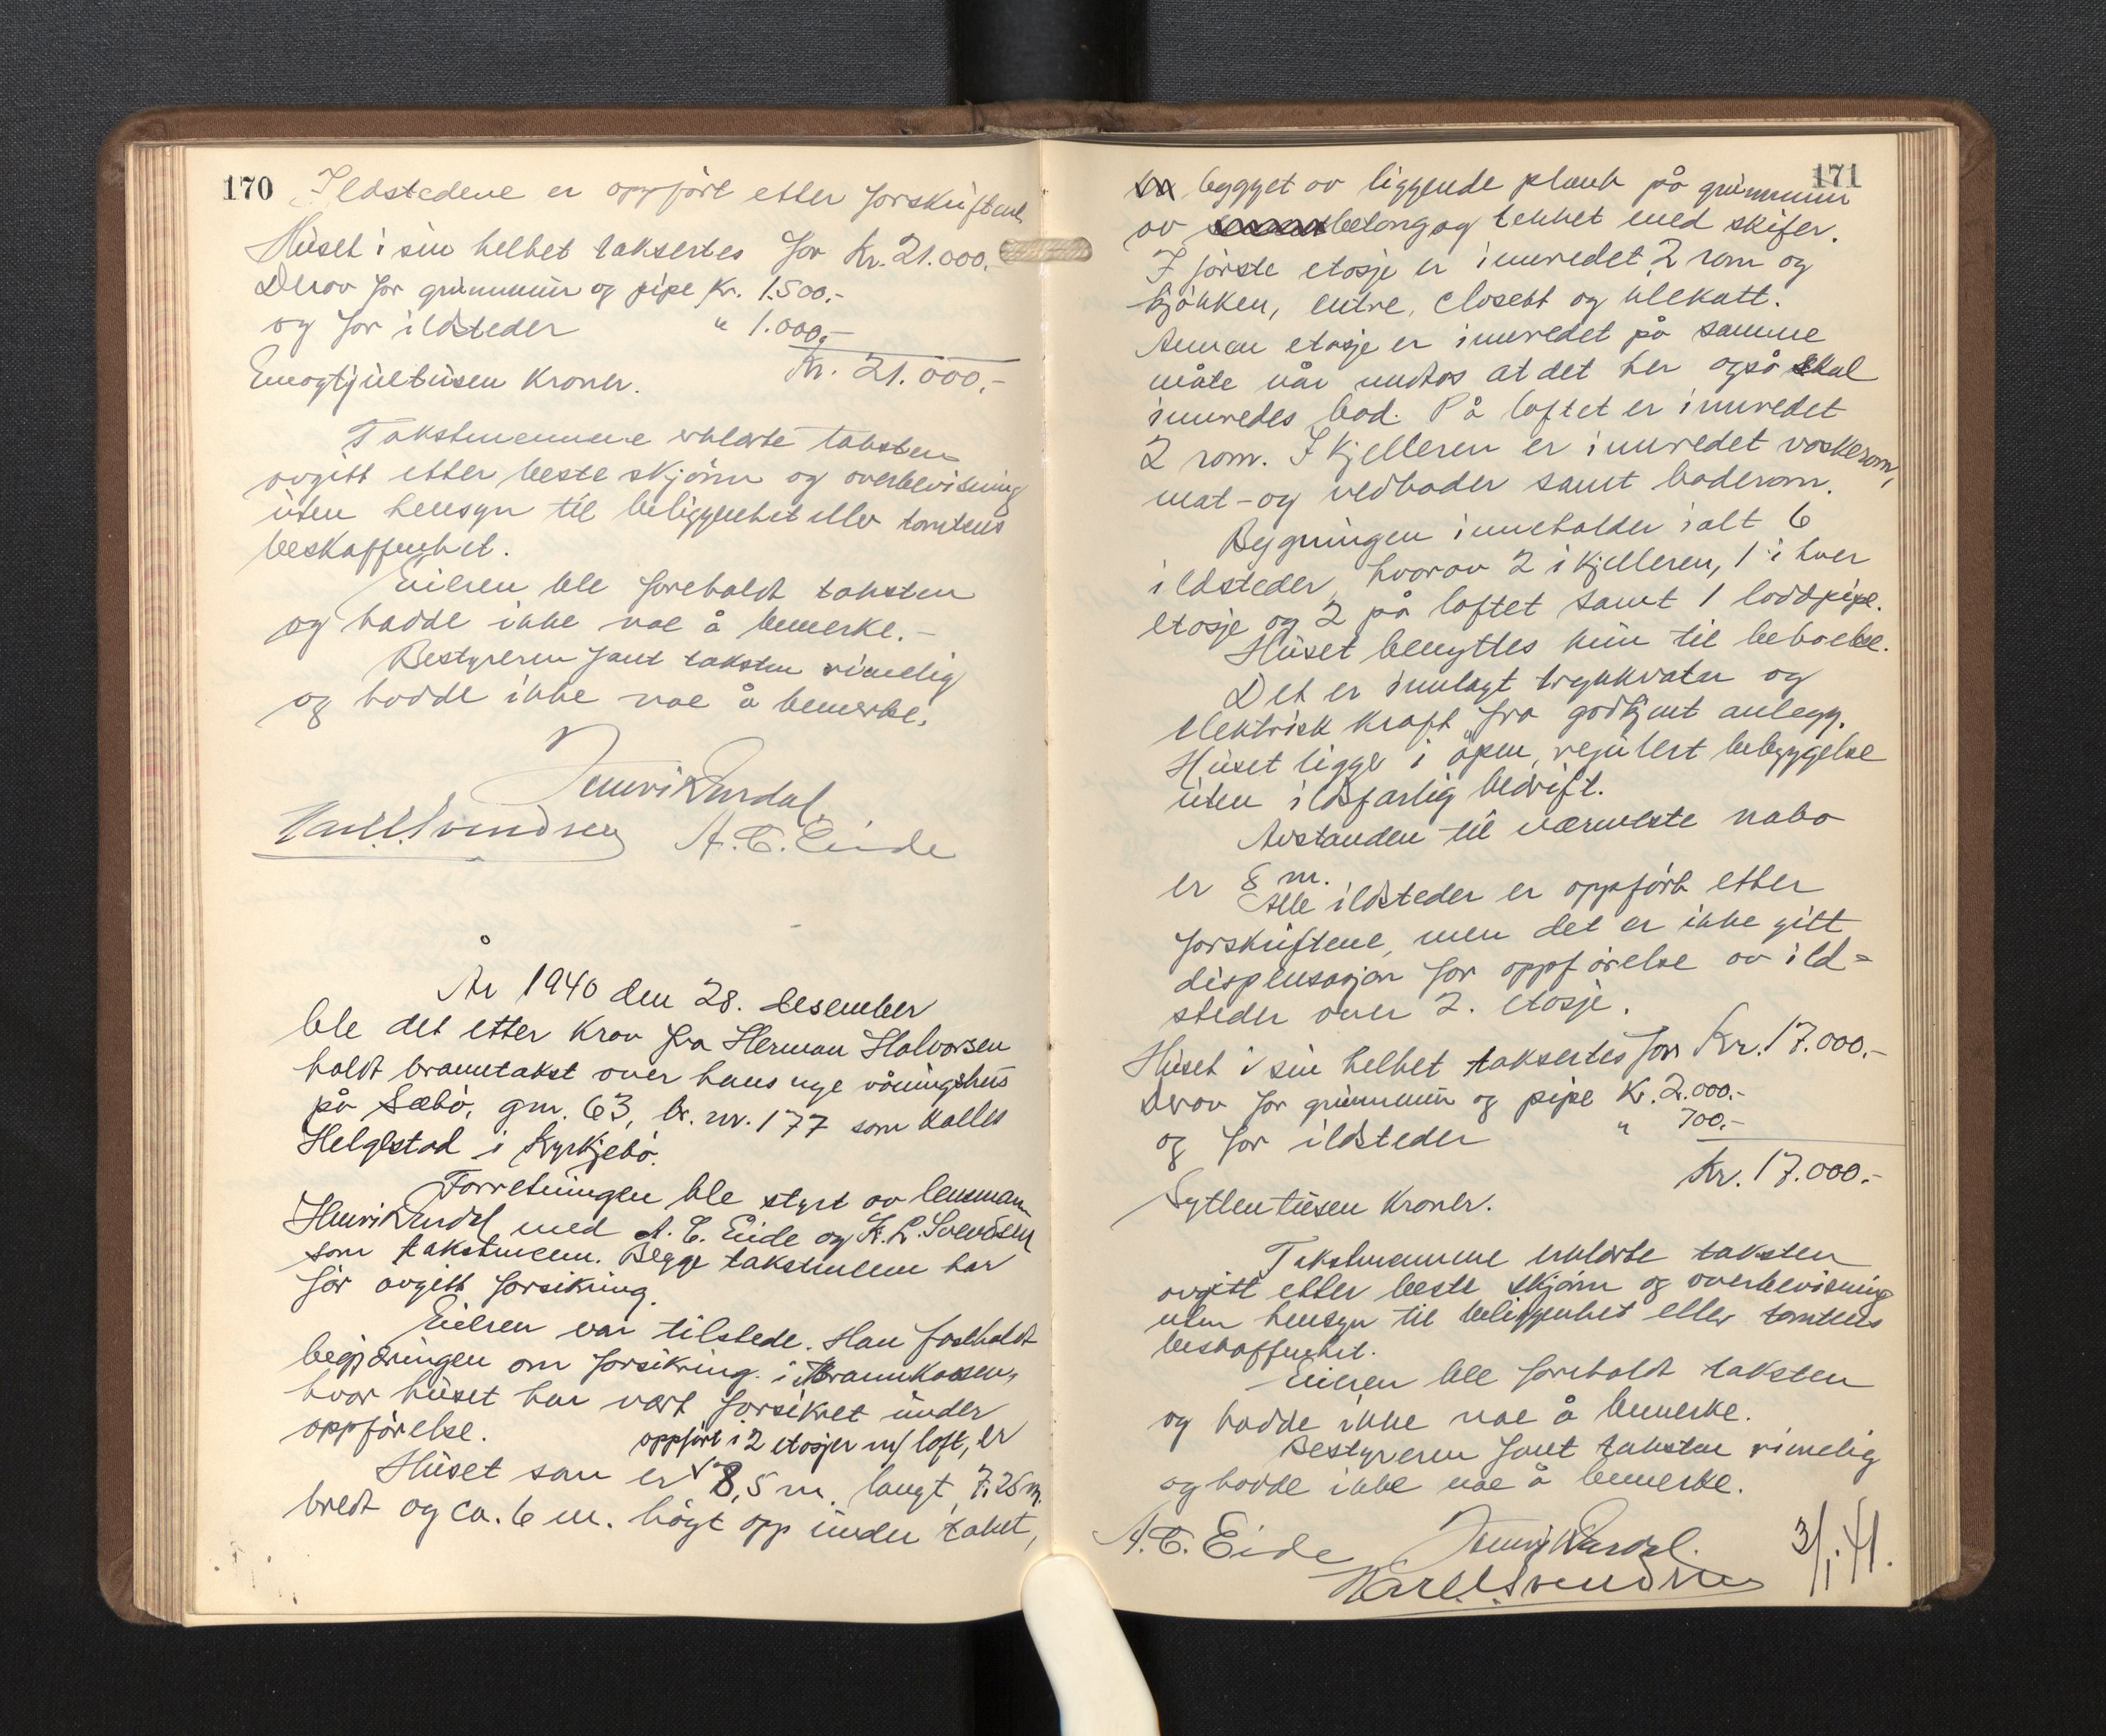 170
Ildstedene er oppført etter forskriftene
Huset i sin helhet taksertes for kr. 21.000.-
Derav for grunnmur og pipe kr. 1.500.-
og for ildsteder " 1.000.-
Kr. 21.000.-
Enogtjuetusen kroner.
Takstmennene erklærte taksten
avgitt etter beste skjønn og overbevisning
uten hensyn til beliggenhet eller tomtens
beskaffenhet.
Eieren ble foreholdt taksten
og hadde ikke noe å bemerke.-
Bestyreren fant taksten rimelig
og hadde ikke noe å bemerke.
Henrik Dardal.
Karl L. Svendsen A. C. Eide
År 1940 den 28. desember
ble det etter krav fra Herman Halvorsen
holdt branntakst over hans nye våningshus
på Sæbø, gnr. 63, br. nr. 177 som kalles
Helgestad i Kyrkjebø.
Forretningen ble styrt av lensmann
Henrik Dardal med A. C. Eide og K. L. Svendsen
som takstmenn. Begge takstmenn har
før avgitt forsikring.
Eieren var tilstede. Han fastholdt
begjæringen om forsikring i Brannkassen,
hvor huset har vært forsikret under
oppførelse.
oppført i 2 etasjer m/ loft, er
Huset som er √ 8,5 m. langt, 7,25 m.
bredt og ca. 6 m. høgt opp under taket,
171
bygget av liggende plank på grunnmur
av betong og tekket med skifer.
I første etasje er innredet 2 rom og
kjøkken, entre, closett og klekott.
Annen etasje er innredet på samme
måte når unntas at det her også skal
innredes bad. På loftet er innredet
2 rom. I kjelleren er innredet vaskerom,
mat- og vedboder samt baderom.
Bygningen inneholder ialt 6
ildsteder, hvorav 2 i kjelleren, 1 i hver
etasje og 2 på loftet samt 1 loddpipe.
Huset benyttes kun til beboelse.
Det er innlagt trykkvatn og
elektrisk kraft fra godkjent anlegg.
Huset ligger i åpen, regulert bebyggelse
uten ildsfarlig bedrift.
Avstanden til nærmeste nabo
er 8 m.
Alle ildsteder er oppført etter
forskriftene, men det er ikke gitt
dispensasjon for oppførelse av ild=
steder over 2. etasje.
Huset i sin helhet taksertes for Kr. 17.000.-
Derav for grunnmur og pipe kr. 2.000.-
og for ildsteder " 700.-
Kr. 17.000.-
Sytten tusen kroner.
Takstmennene erklærte taksten
avgitt etter beste skjønn og overbevisning
uten hensyn til beliggenhet eller tomtens
beskaffenhet.
Eieren ble foreholdt taksten
og hadde ikke noe å bemerke.
Bestyreren fant taksten rimelig
og hadde ikke noe å bemerke.
A. C. Eide Henrik Dardal. 3/1.41.
Karl L. Svendsen